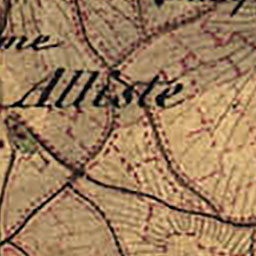 me
Alliste